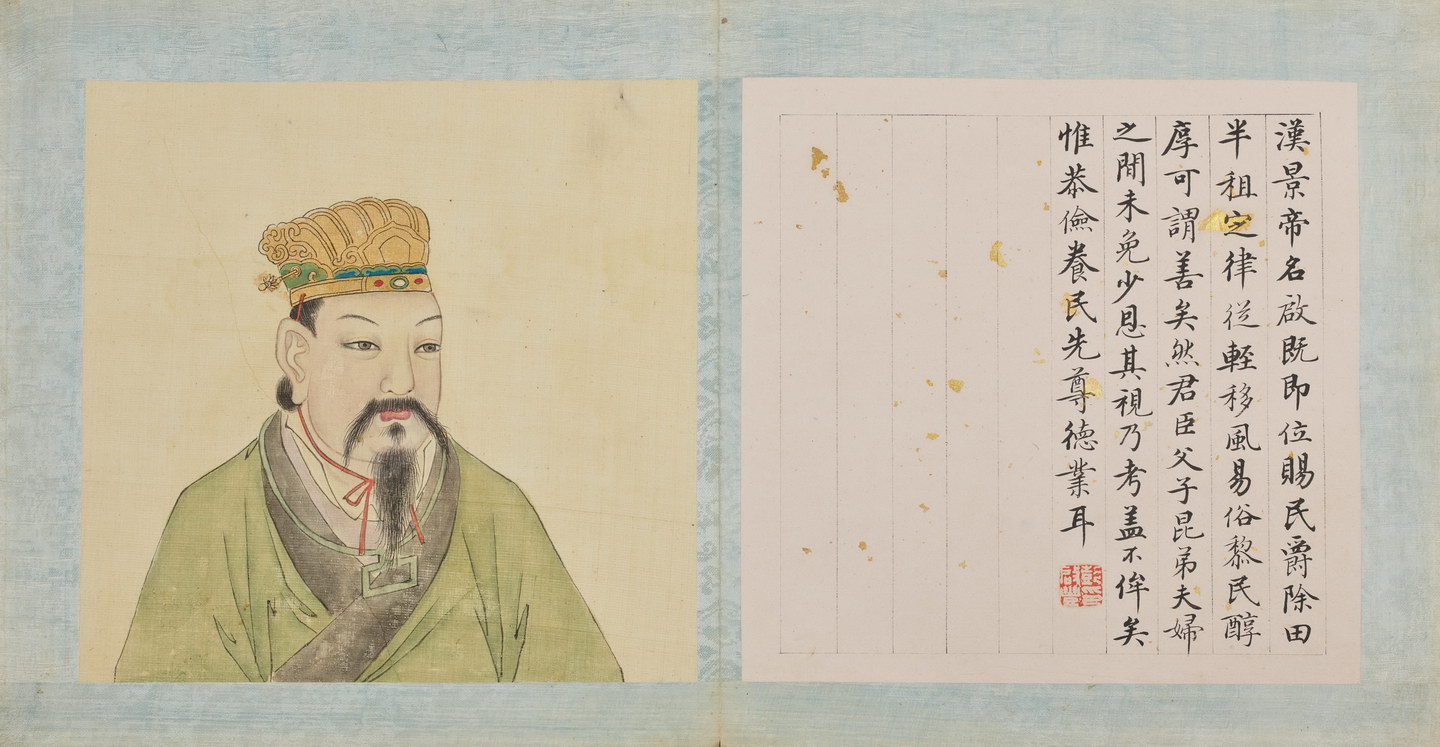 漢景帝名啟既即位賜民爵除田
半租定律從輕移風易俗黎民醇
厚可謂善矣然君臣父子昆弟夫婦
之間未免少恩其視乃考盖不侔矣
惟恭儉養民先尊德業耳